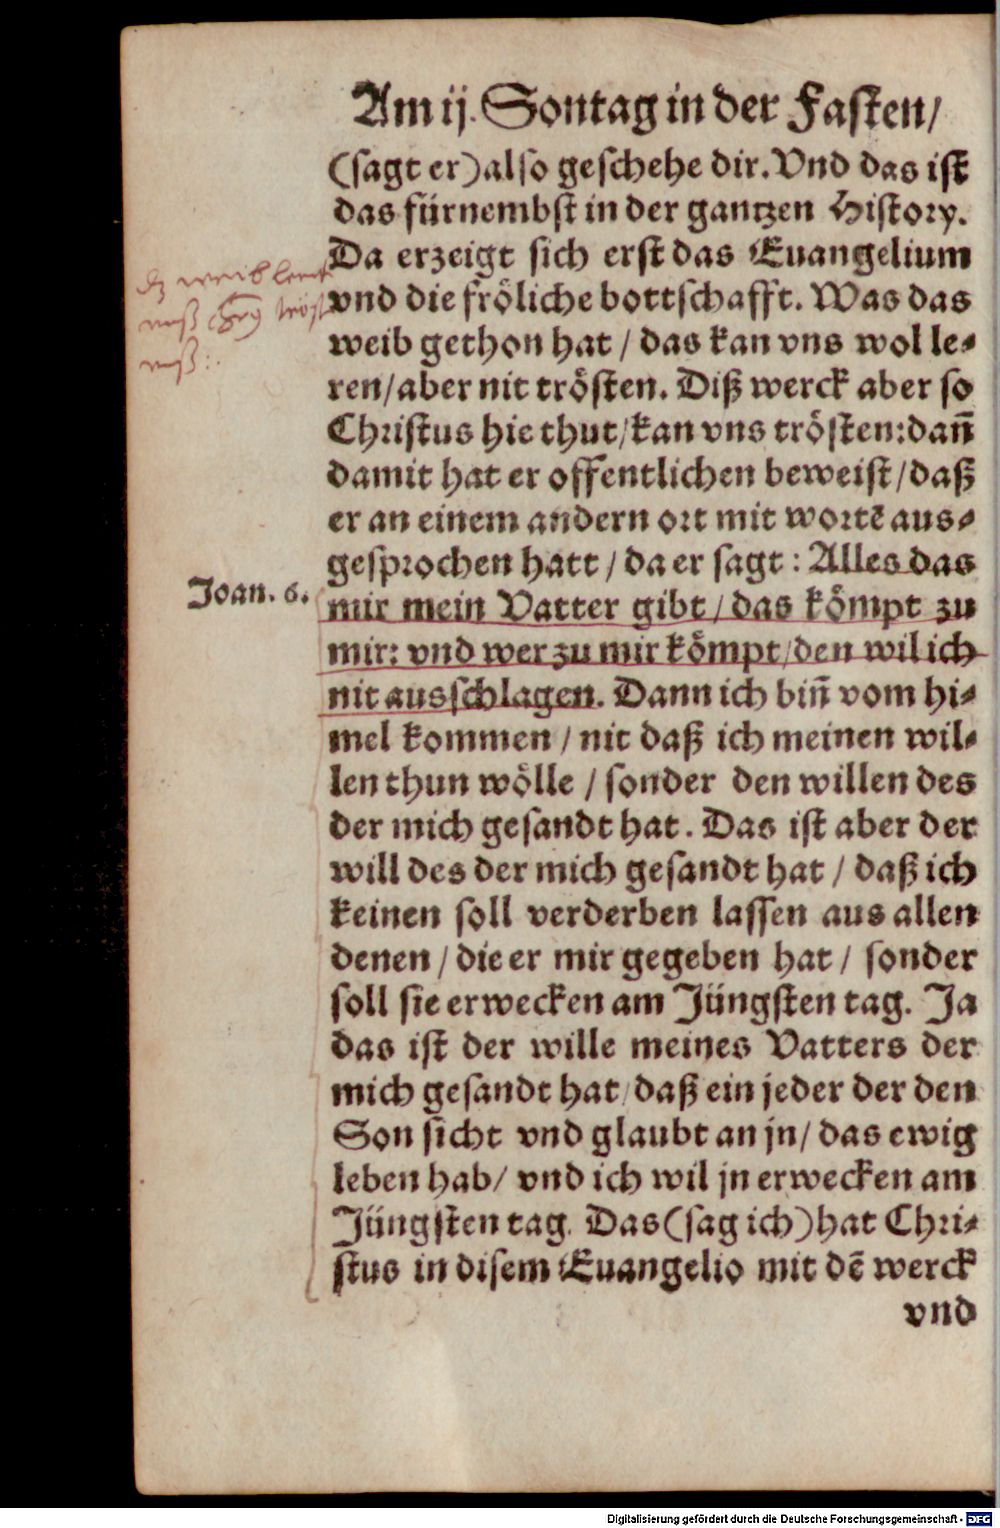 Am ij. Sontag in der Fasten/
(sagt er) also geschehe dir. Vnd das ist
das fürnembst in der gantzen History.
Da erzeigt sich erst das Euangelium
vnd die fröliche bottschafft. Was das
weib gethon hat / das kan vns wol le-
ren/ aber nit trösten. Diß werck aber so
Christus hie thut/ kan vns trösten: dañ
damit hat er offentlichen beweist/ daß
er an einem andern ort mit wortē aus-
gesprochen hatt / da er sagt : Alles das
mir mein Vatter gibt / das kömpt zu
mir: vnd wer zu mir kömpt/ den wil ich
nit ausschlagen. Dann ich biñ vom hi-
mel kommen / nit daß ich meinen wil-
len thun wölle / sonder den willen des
der mich gesandt hat. Das ist aber der
will des der mich gesandt hat / daß ich
keinen soll verderben lassen aus allen
denen / die er mir gegeben hat / sonder
soll sie erwecken am Jüngsten tag. Ja
das ist der wille meines Vatters der
mich gesandt hat/ daß ein jeder der den
Son sicht vnd glaubt an jn/ das ewig
leben hab/ vnd ich wil jn erwecken am
Jüngsten tag. Das (sag ich) hat Chri-
stus in disem Euangelio mit dē werck
vnd
dz weib lernt
vnß tröst
vnß:
Joan. 6.
Digitalisierung gefördert durch die Deutsche Forschungsgemeinschaft - DFG